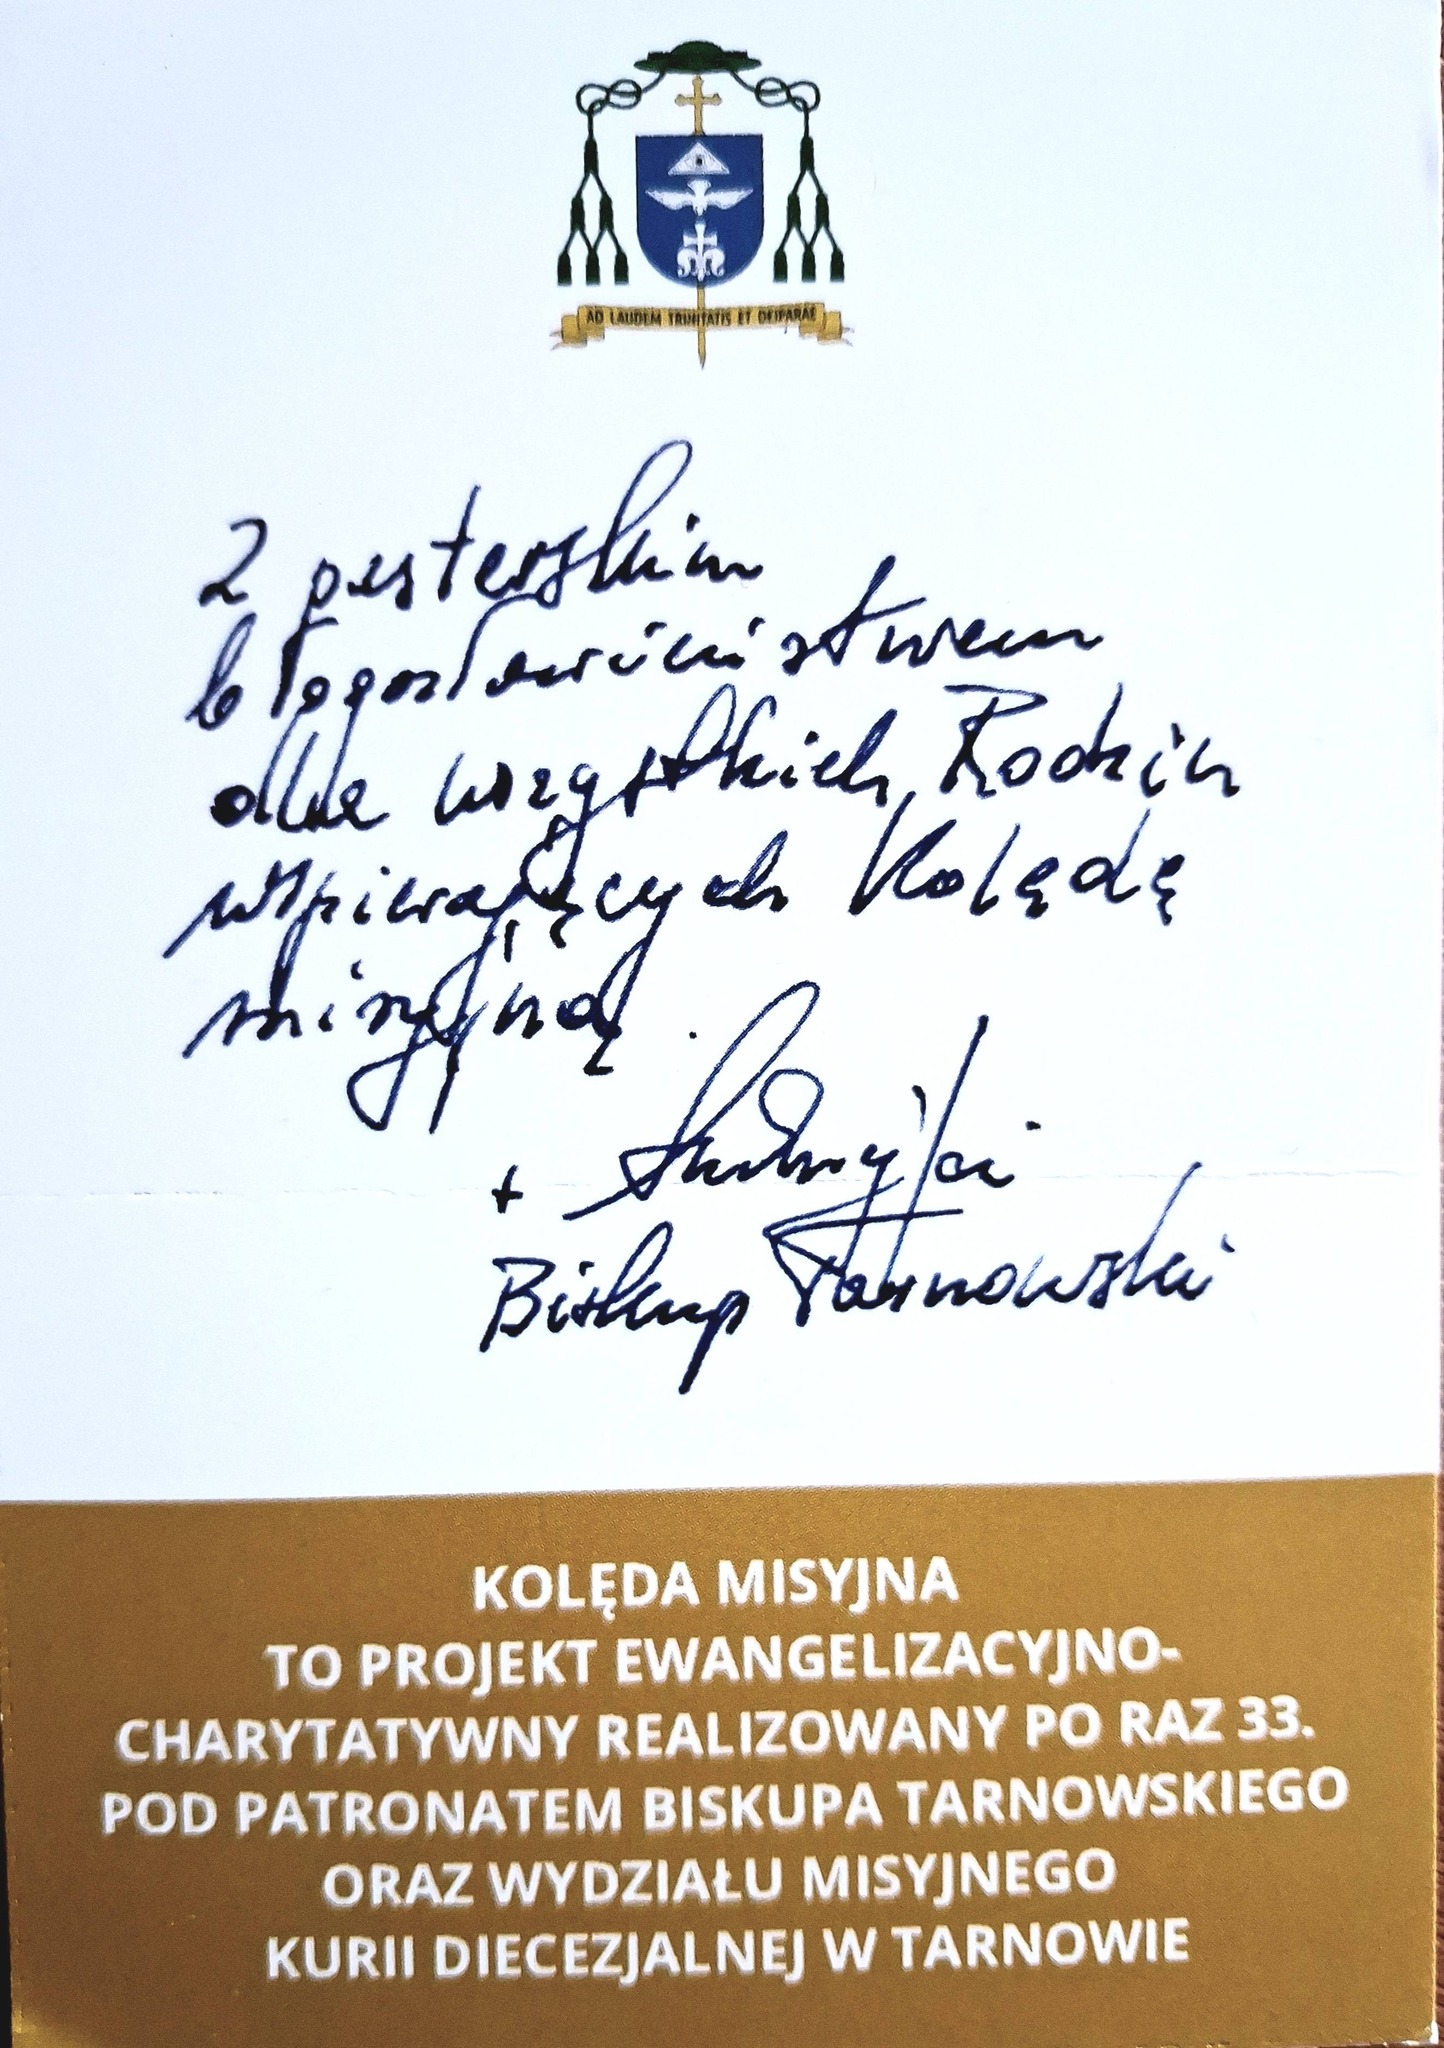 AD LAUDEM TRINITATIS ET DEIPARAE
Z pasterskim
błogosławieństwem
dla wszystkich Rodzin
wspierających Kolędę
misyjną.
+ Andrzej Jeż
Biskup Tarnowski
KOLĘDA MISYJNA
TO PROJEKT EWANGELIZACYJNO-
CHARYTATYWNY REALIZOWANY PO RAZ 33.
POD PATRONATEM BISKUPA TARNOWSKIEGO
ORAZ WYDZIAŁU MISYJNEGO
KURII DIECEZJALNEJ W TARNOWIE